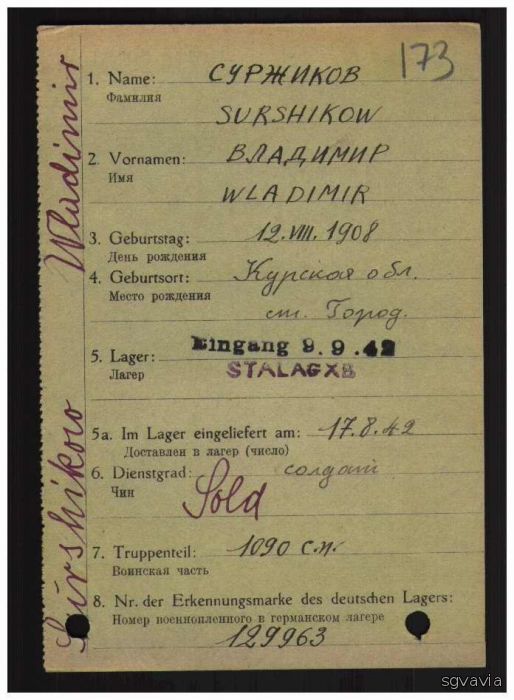 173
1. Name: СУРЖИКОВ
Фамилия
SURSHIKOW
2. Vornamen: ВЛАДИМИР
Имя
WLADIMIR
3. Geburtstag: 12.VIII.1908
День рождения
4. Geburtsort: Курская обл.
Место рождения
ст. Город.
Eingang 9.9.42
5. Lager: STALAG XB
Лагер
5a. Im Lager eingeliefert am: 17.8.42
Доставлен в лагер (число)
6. Dienstgrad: солдат
Чин
Sold
7. Truppenteil: 1090 с.п.
Воинская часть
8. Nr. der Erkennungsmarke des deutschen Lagers:
Номер военнопленного в германском лагере
129963
Surshikow Wladimir
sgvavia